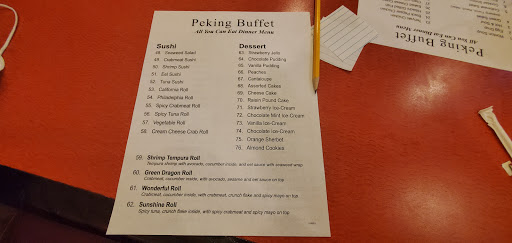 Peking Buffet
All You Can Eat Dinner Menu
Sushi
48. Seaweed Salad
49. Crabmeat Sushi
50. Shrimp Sushi
51. Eel Sushi
52. Tuna Sushi
53. California Roll
54. Philadelphia Roll
55. Spicy Crabmeat Roll
56. Spicy Tuna Roll
57. Vegetable Roll
58. Cream Cheese Crab Roll
Dessert
63. Strawberry Jello
64. Chocolate Pudding
65. Vanilla Pudding
66. Peaches
67. Cantaloupe
68. Assorted Cakes
69. Cheese Cake
70. Raisin Pound Cake
71. Strawberry Ice-Cream
72. Chocolate Mint Ice-Cream
73. Vanilla Ice-Cream
74. Chocolate Ice-Cream
75. Orange Sherbet
76. Almond Cookies
59. Shrimp Tempura Roll
Tempura shrimp with avocado, cucumber inside, and eel sauce with seaweed wrap
60. Green Dragon Roll
Crabmeat, cucumber inside, with avocado, sesame and eel sauce on top
61. Wonderful Roll
Crabmeat, cucumber inside, with crabmeat, crunch flake and spicy mayo on top
62. Sunshine Roll
Spicy tuna, crunch flake inside, with spicy crabmeat and spicy mayo on top
Peking Buffet
All You Can Eat Dinner Menu